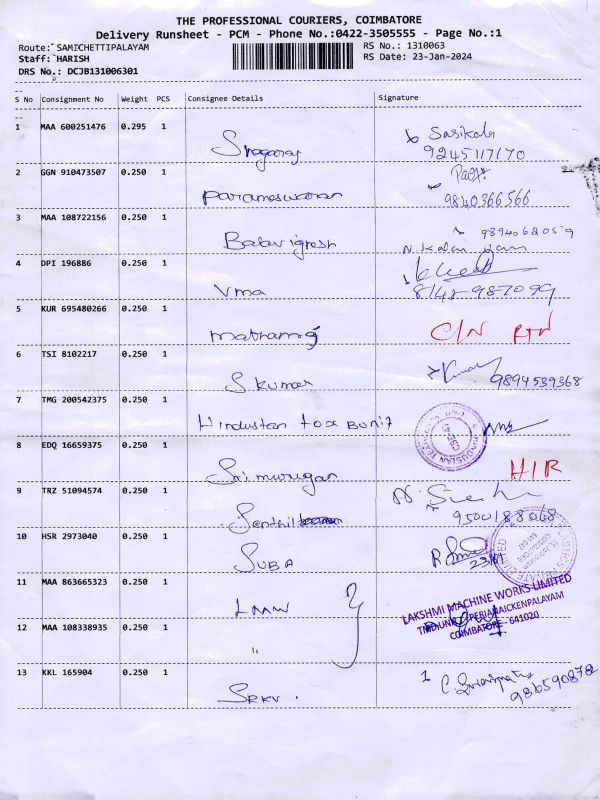 THE PROFESSIONAL COURIERS, COIMBATORE
Delivery Runsheet - PCM - Phone No.:0422-3505555 - Page No.:1
Route: SAMICHETTIPALAYAM
RS No.: 1310063
Staff: HARISH
RS Date: 23-Jan-2024
DRS No.: DCJB131006301
S No Consignment No Weight PCS Consignee Details Signature
1 MAA 600251476 0.295 1
Sasikala
9245117170
2 GGN 910473507 0.250 1
Parameswaran 9840366566
3 MAA 108722156 0.250 1
9894062059
Balavignesh
4 DPI 196886 0.250 1
Vma 8148-987099
5 KUR 695480266 0.250 1
C/N RTN
6 TSI 8102217 0.250 1
S.kumar 9894539368
7 TMG 200542375 0.250 1
Hindustan
8 EDQ 16659375 0.250 1
Sri murugan HIR
9 TRZ 51094574 0.250 1
Senthil 9500188068
10 HSR 2973040 0.250 1
SUBA 23/01
11 MAA 863665323 0.250 1
LMW
LAKSHMI MACHINE WORKS LIMITED
PERIANAICKENPALAYAM
COIMBATORE - 641020
12 MAA 108338935 0.250 1
"
13 KKL 165904 0.250 1
SRKV. 986590878